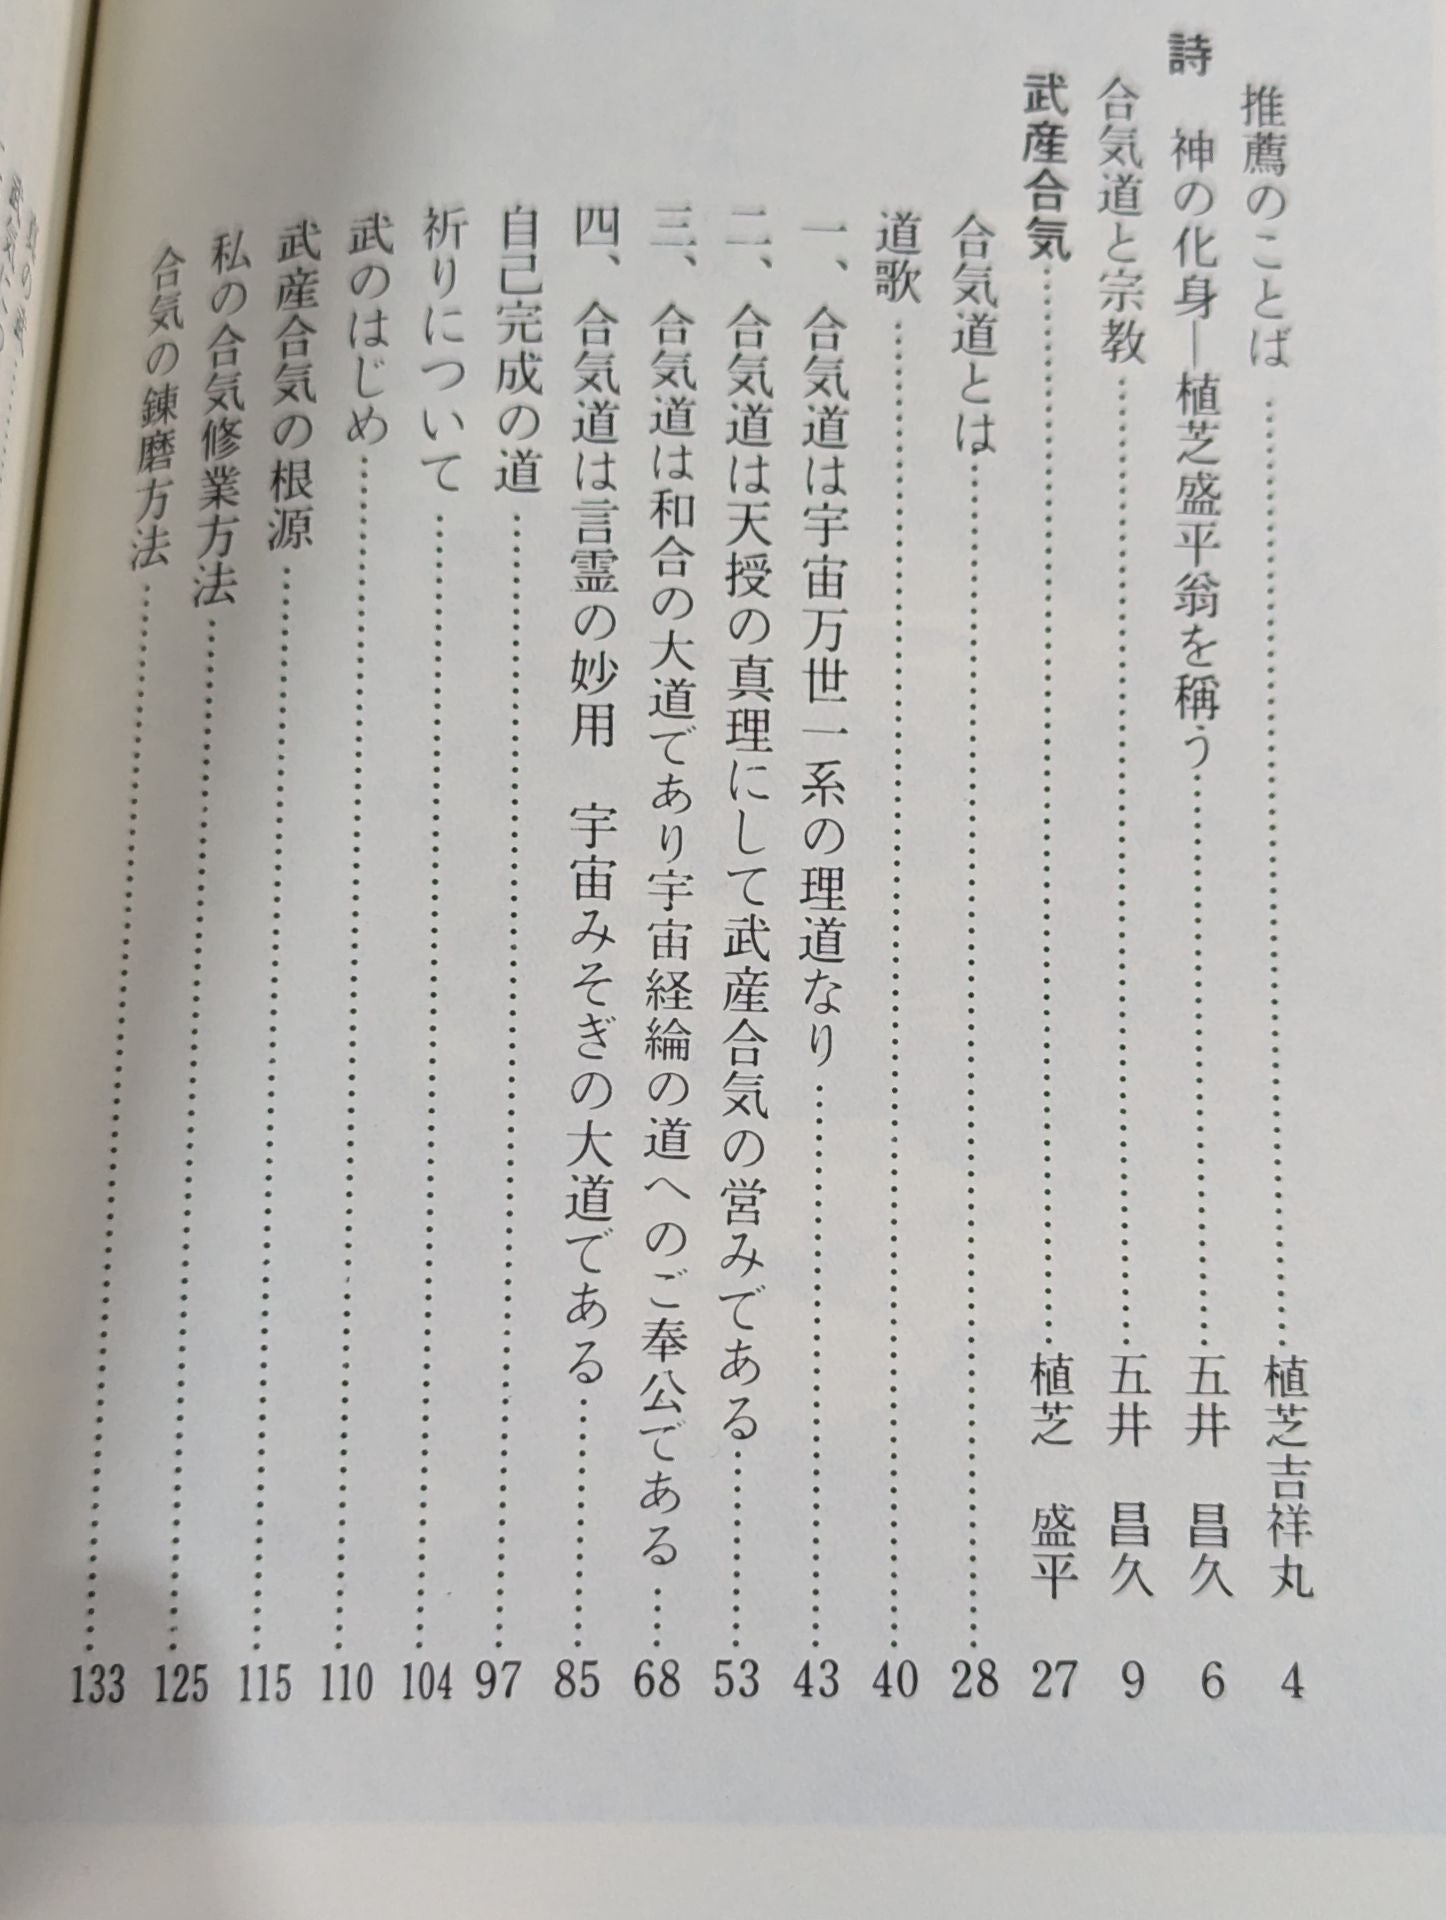 推薦のことば……………植芝吉祥丸 4
詩　神の化身―植芝盛平翁を称う……………五井　昌久 6
合気道と宗教……………五井　昌久 9
武産合気……………植芝　盛平 27
合気道とは……………28
道歌……………40
一、合気道は宇宙万世一系の理道なり……………43
二、合気道は天授の真理にして武産合気の営みである……………53
三、合気道は和合の大道であり宇宙経綸の道へのご奉公である……………68
四、合気道は言霊の妙用　宇宙みそぎの大道である……………85
自己完成の道……………97
祈りについて……………104
武のはじめ……………110
武産合気の根源……………115
私の合気修業方法……………125
合気の錬磨方法……………133